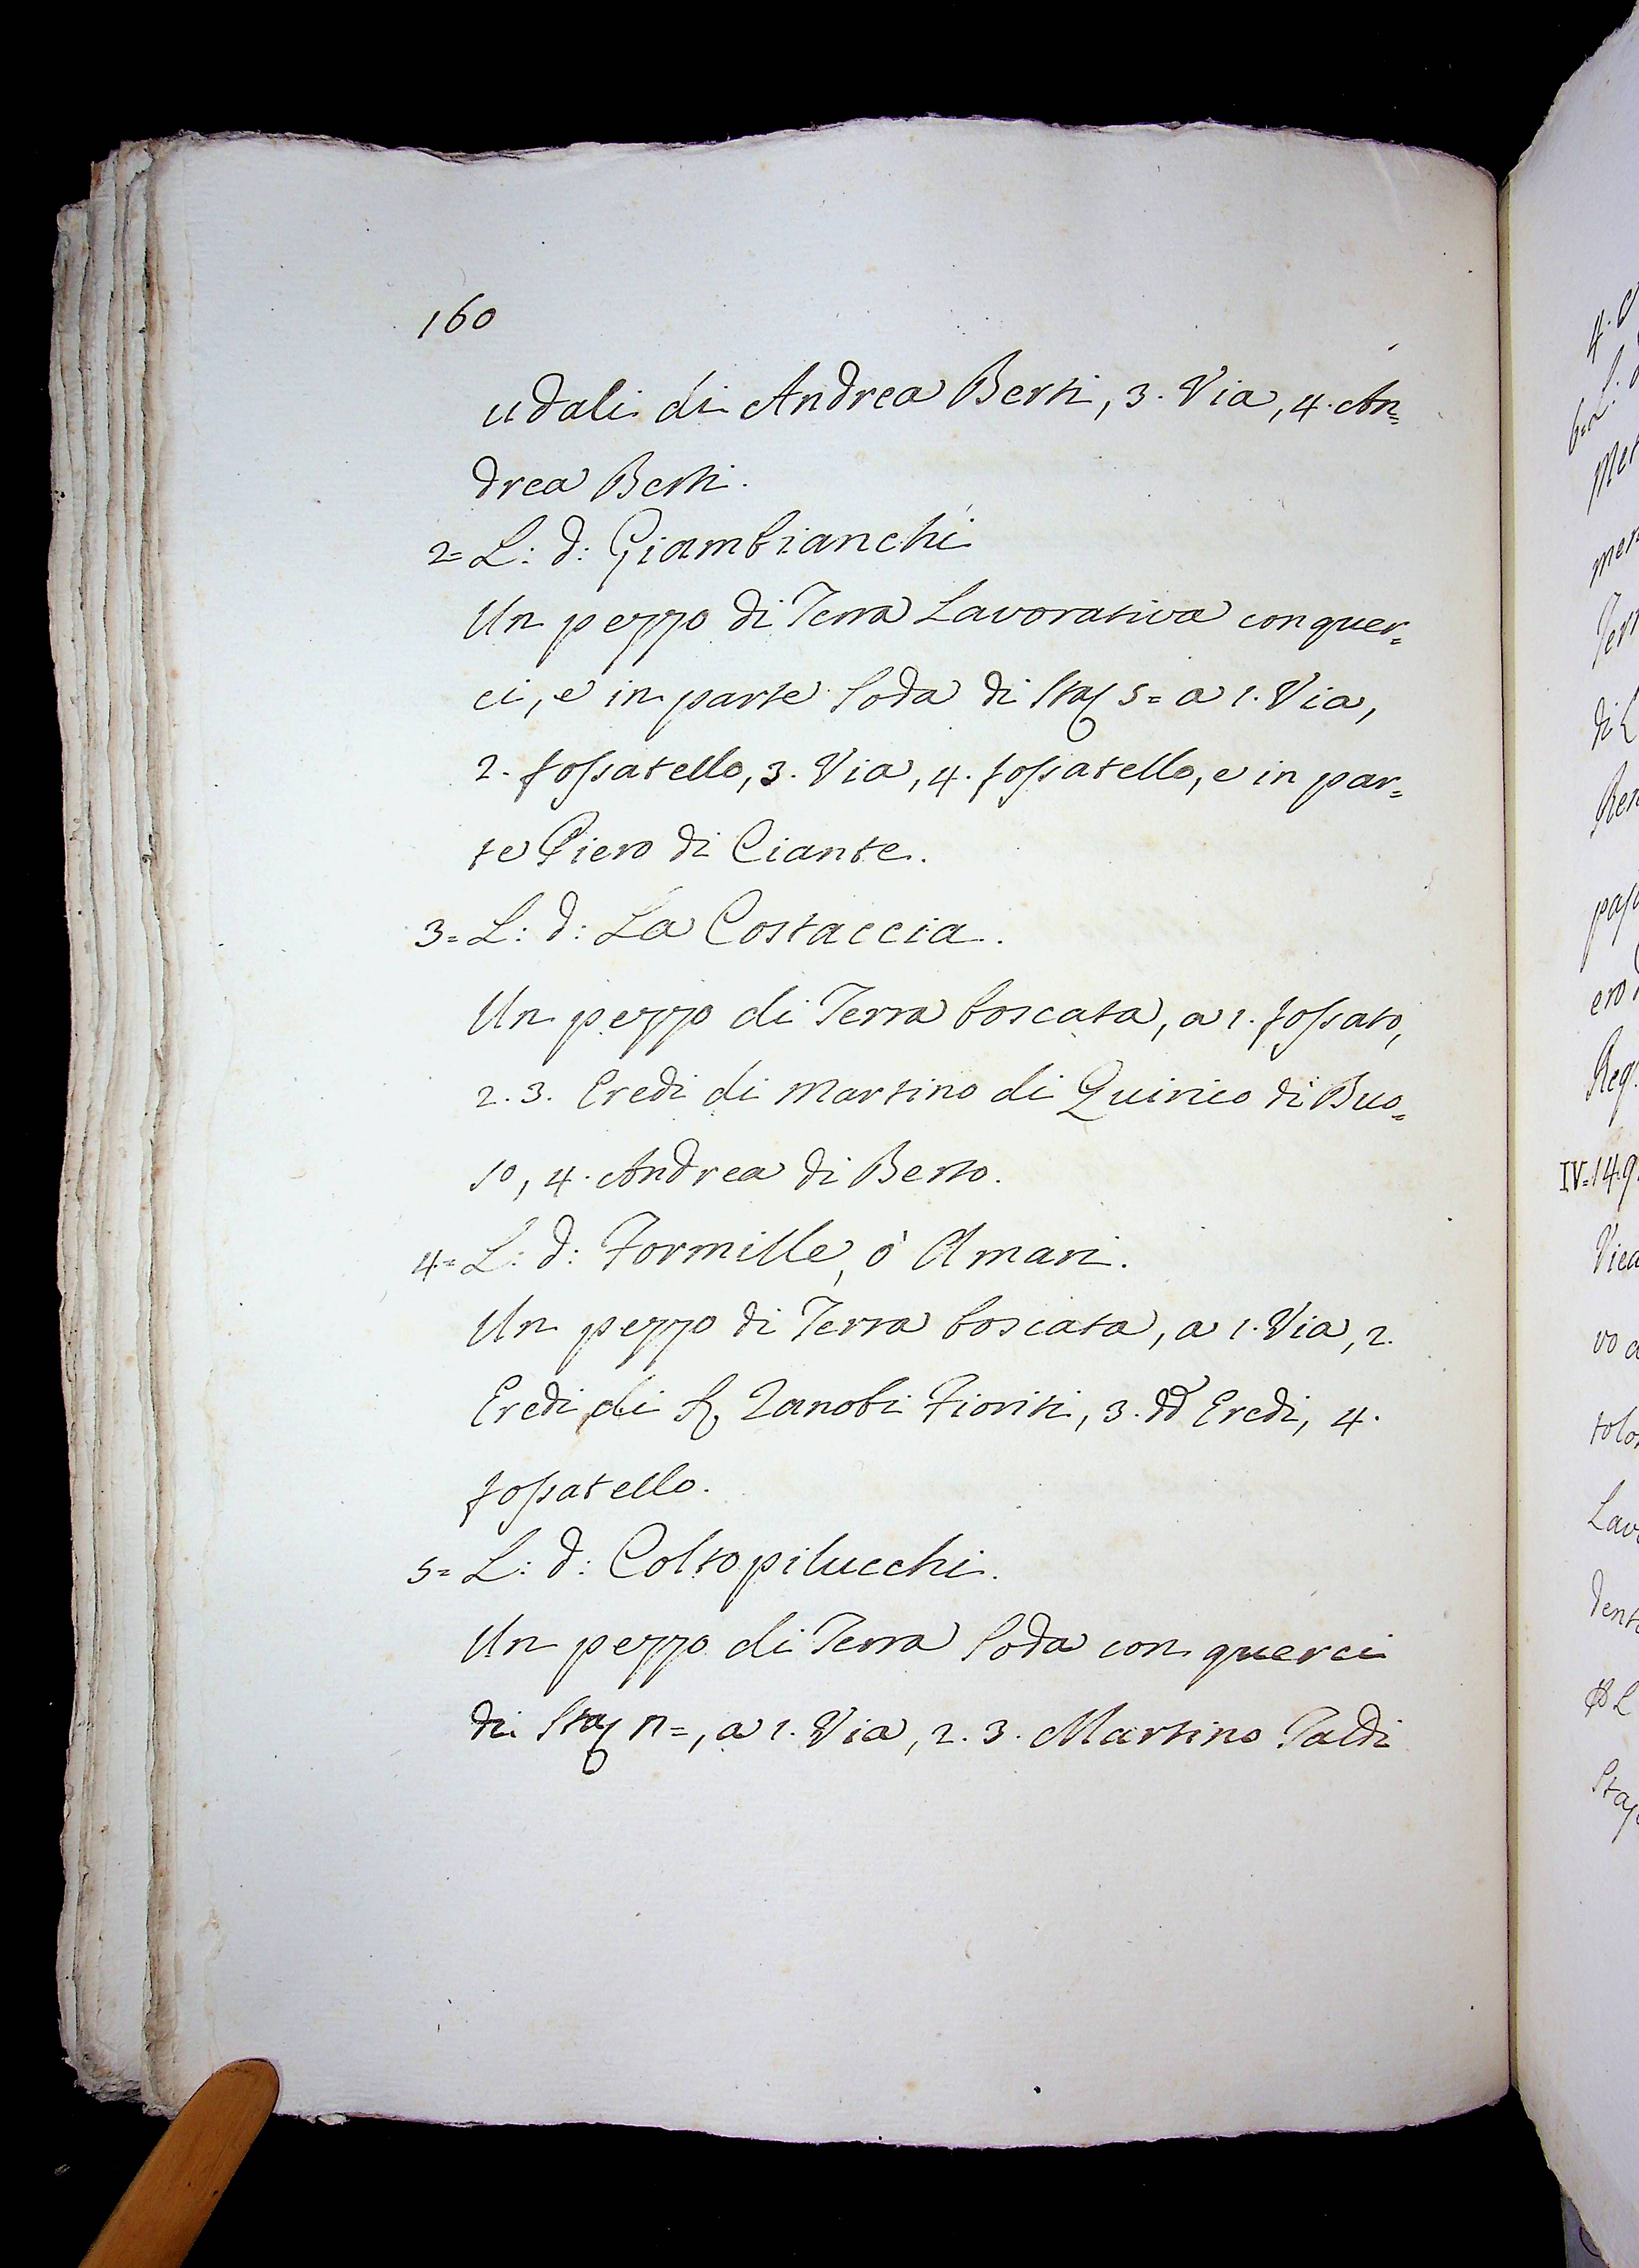 160
udali di Andrea Berti, 3. Via, 4. An=
drea Berti.
2= L: d: Giambianchi
Un pezzo di Terra Lavorativa con quer=
ci, e in parte soda di Staj 5= a 1. Via,
2. fossatello, 3. Via, 4. fossatello, e in par=
te Piero di Ciante.
3= L: d: La Costaccia.
Un pezzo di Terra boscata, a 1. fossato,
2. 3. Eredi di Martino di Quirico di Buo=
so, 4. Andrea di Berto.
4= L: d: Formille, ò Amari.
Un pezzo di Terra boscata, a 1. Via, 2.
Eredi di Zanobi Fioriti, 3. dd Eredi, 4.
fossatello.
5= L: d: Coltopilucchi.
Un pezzo di Terra soda con querci
di Staj n=, a 1. Via, 2. 3. Martino Taldi
IV=149